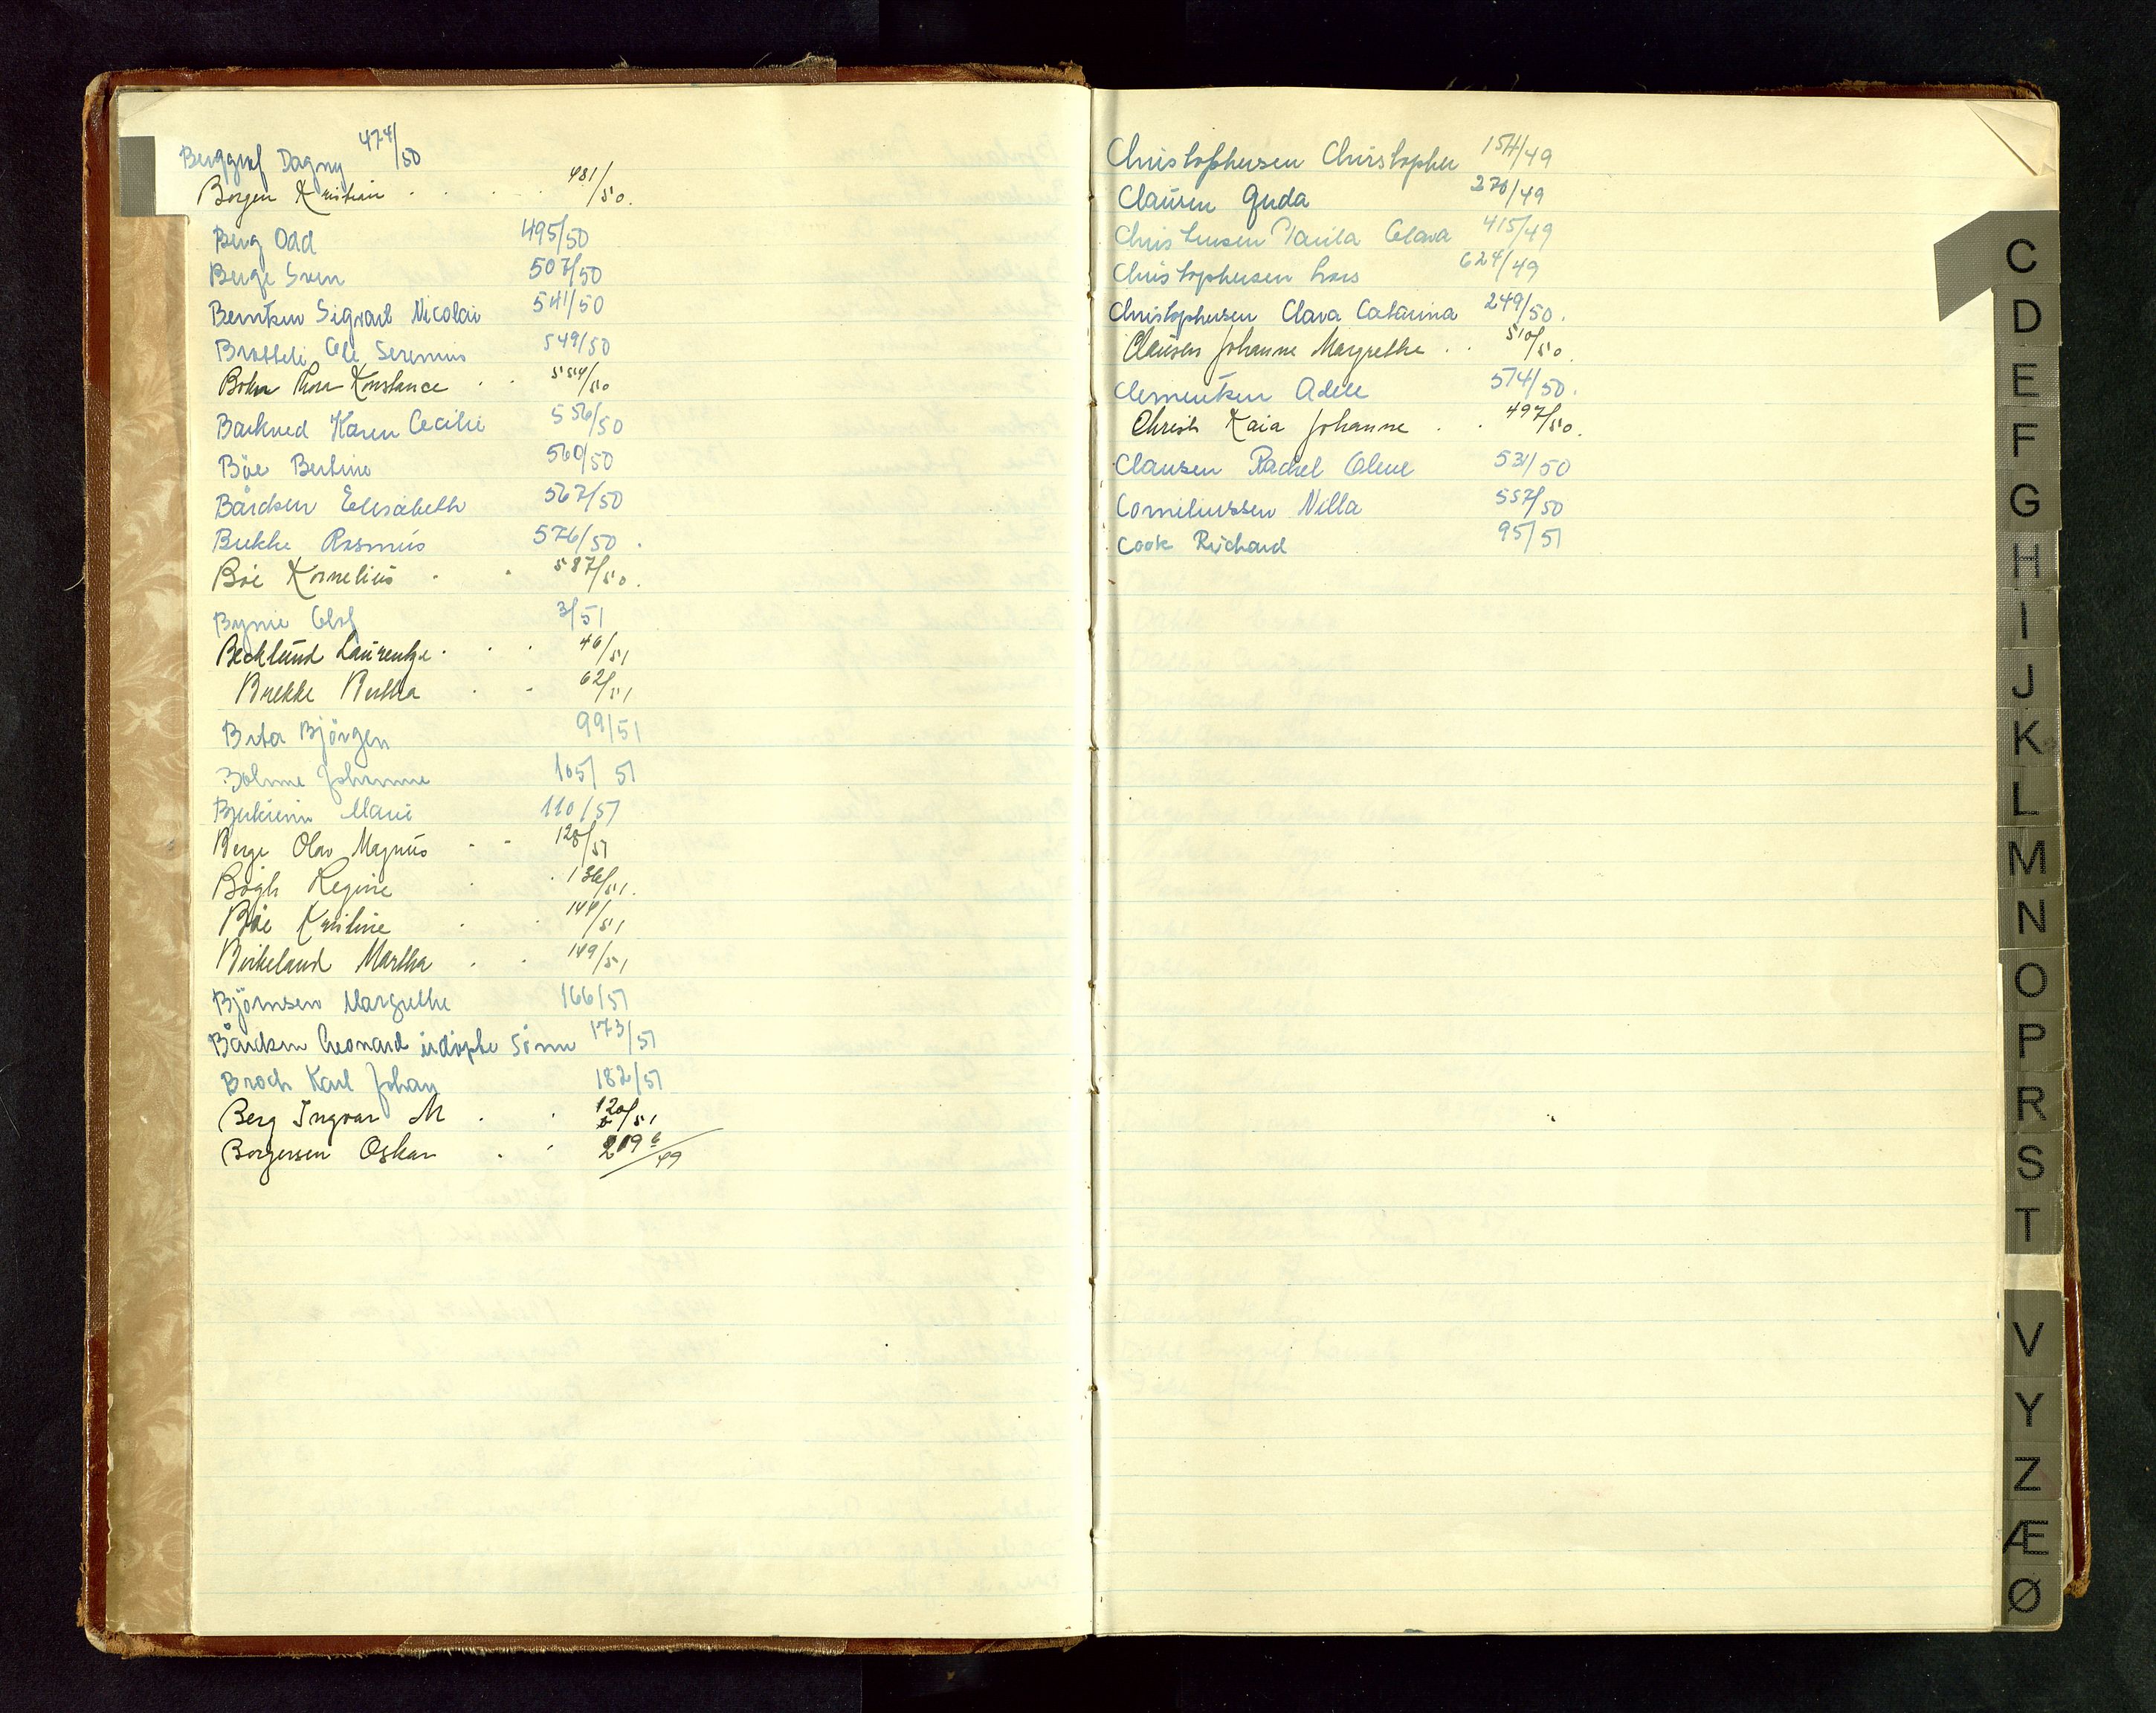 Berggraf Dagny 474/50
Borgen Kristian . . . . 481/50.
Berg Odd 495/50
Berge Sven 507/50
Berntsen Sigvart Nicolai 541/50
Ole Seremius 549/50
Bohn Thora Konstance . . 554/50
Barkved Karen Cecilie 556/50
Böe Bertine 560/50
Bårdsen Elisabeth 567/50
Bekke Rasmus 576/50 .
Böe Kornelius . . 587/50.
Bynie Olaf 3/51
Becklund Laurentze . . . 46/51
Brekke Bertha . . 62/51
Brta Björgen 99/51
Bolme Johanne 105/51
Marie 110/51
Berge Olav Magnus . . 128/51
Bögh Regine . . 136/51.
Böe Kristine . . 144/51
Birkeland Martha . . 149/51
Björnsen Margrethe 166/51
Bårdsen Leonard udöpte Sönn 173/51
Broch Karl Johan 182/51
Berg Ingvar M . . 120/51
Borgersen Oskar . . 219 6/49
Christophersen Christopher 154/49
Clausen Guda 270/49
Christensen Clara 415/49
Christophersen Lars 624/49
Christophersen Clara Catarina 249/50.
Clausen Johanne Margrethe . . 510/50.
Clementsen Adele 574/50.
Christ Kaia Johanne . . 497/50.
Clausen Rachel Olene 531/50
Corneliussen Nilla 557/50
Cook Richard 95/51
C
D
E
F
G
H
I
J
K
L
M
N
O
P
R
S
T
V
Y
Z
Æ
Ø